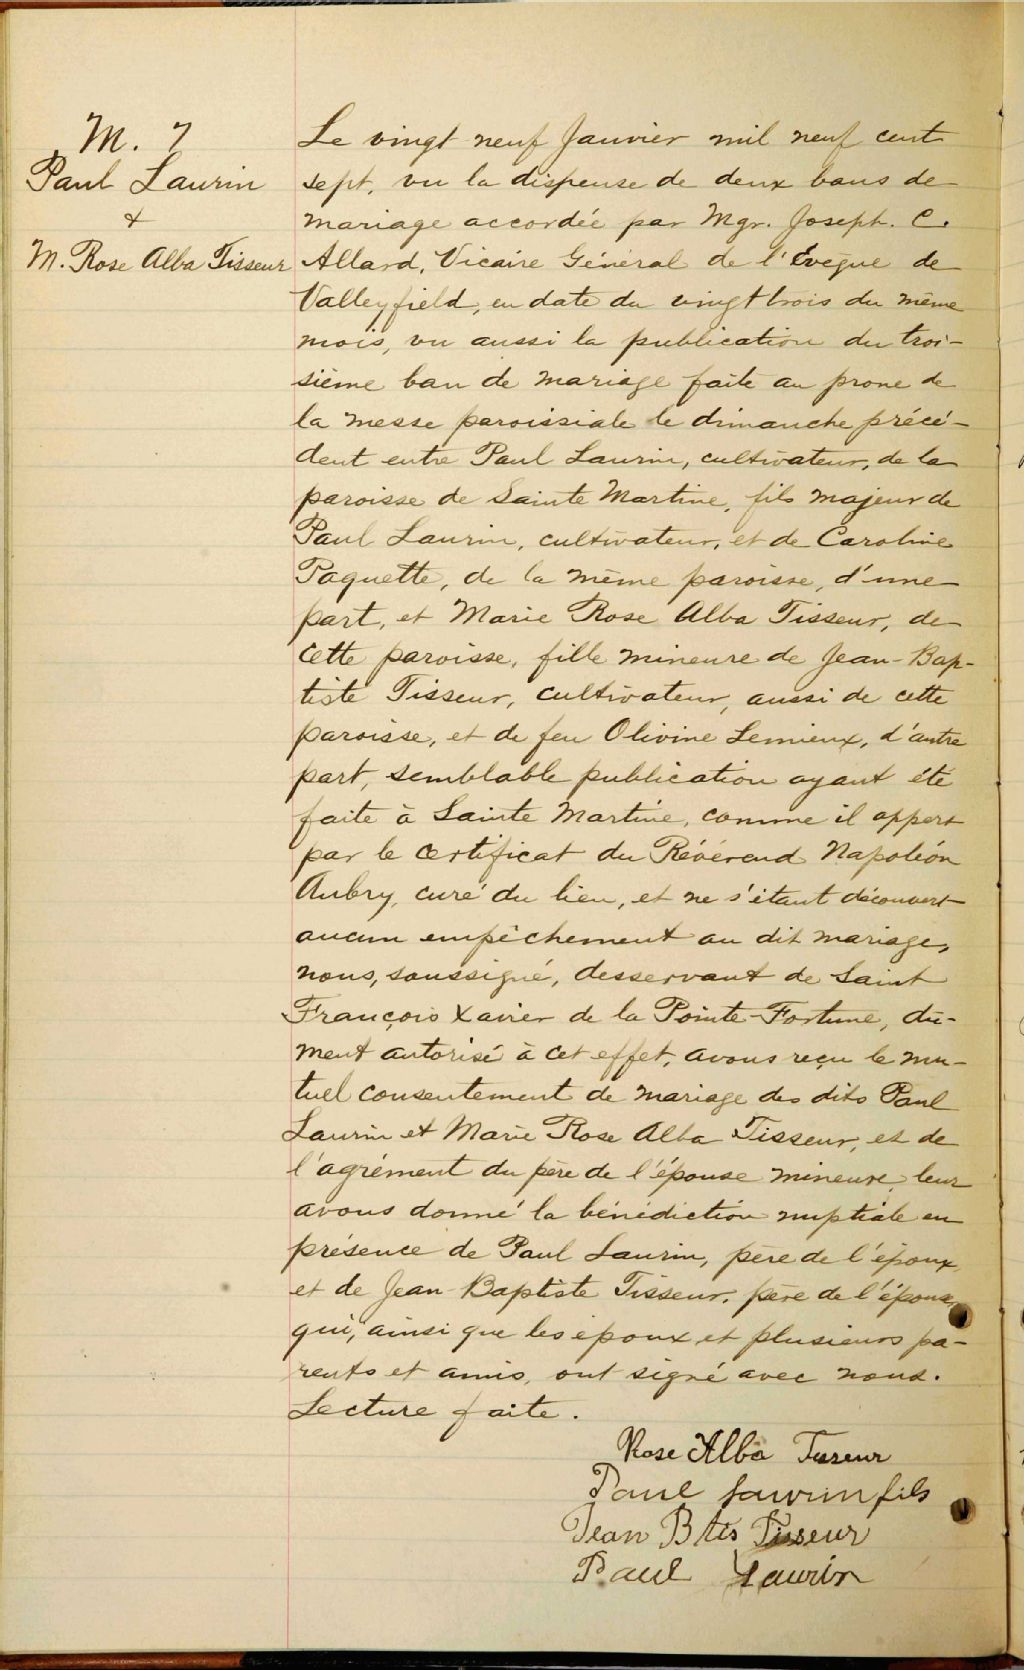 M. 7
Paul Laurin
&
M. Rose Alba Tisseur
Le vingt neuf Janvier mil neuf cent
sept, vu la dispense de deux bans de
mariage accordée par Mgr. Joseph. C.
Allard, Vicaire Général de l'Evêque de
Valleyfield, en date du vingt trois du même
mois, vu aussi la publication du troi-
sième ban de mariage faite au prone de
la messe paroissiale le dimanche précé-
dent entre Paul Laurin, cultivateur, de la
paroisse de Sainte Martine, fils majeur de
Paul Laurin, cultivateur, et de Caroline
Paquette, de la même paroisse, d'une
part, et Marie Rose Alba Tisseur, de
cette paroisse, fille mineure de Jean-Bap-
tiste Tisseur, cultivateur, aussi de cette
paroisse, et de feu Olivine Lemieux, d'autre
part, semblable publication ayant été
faite à Sainte Martine, comme il appert
par le certificat du Révérend Napoléon
Aubry, curé du lieu, et ne s'étant découvert
aucun empêchement au dit mariage,
nous, soussigné, desservant de Saint
François Xavier de la Pointe-Fortune, dû-
ment autorisé à cet effet, avons reçu le mu-
tuel consentement de mariage des dits Paul
Laurin et Marie Rose Alba Tisseur, et de
l'agrément du père de l'épouse mineure, leur
avons donné la bénédiction nuptiale en
présence de Paul Laurin, père de l'époux,
et de Jean-Baptiste Tisseur, père de l'épouse,
qui, ainsi que les époux et plusieurs pa-
rents et amis, ont signé avec nous.
Lecture faite.
Rose Alba Tisseur
Paul Laurin fils
Jean Btis Tisseur
Paul Laurin